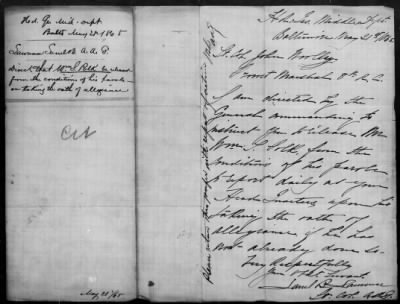 Hd. Qr. Mid. Dept
Balto May 28 1865
Lawrence Saml B. A. A. G.
Directs that Wm J. Release
from the condition of his parole
on taking the oath of allegiance
May 28/65
Please return this paper with report of action
Hd. Qrs. Middle Dept
Baltimore May 28th 1865
Lt. Col. John Woolley
Provost Marshal 8th A.C.
I am directed by the
General commanding to
instruct you to release Mr
Wm J. from the
conditions of his parole
to report daily at your
Head Quarters upon his
taking the oath of
allegiance if he has
not already done so
Very Respectfully
Your Obt. Servant
Saml B. Lawrence